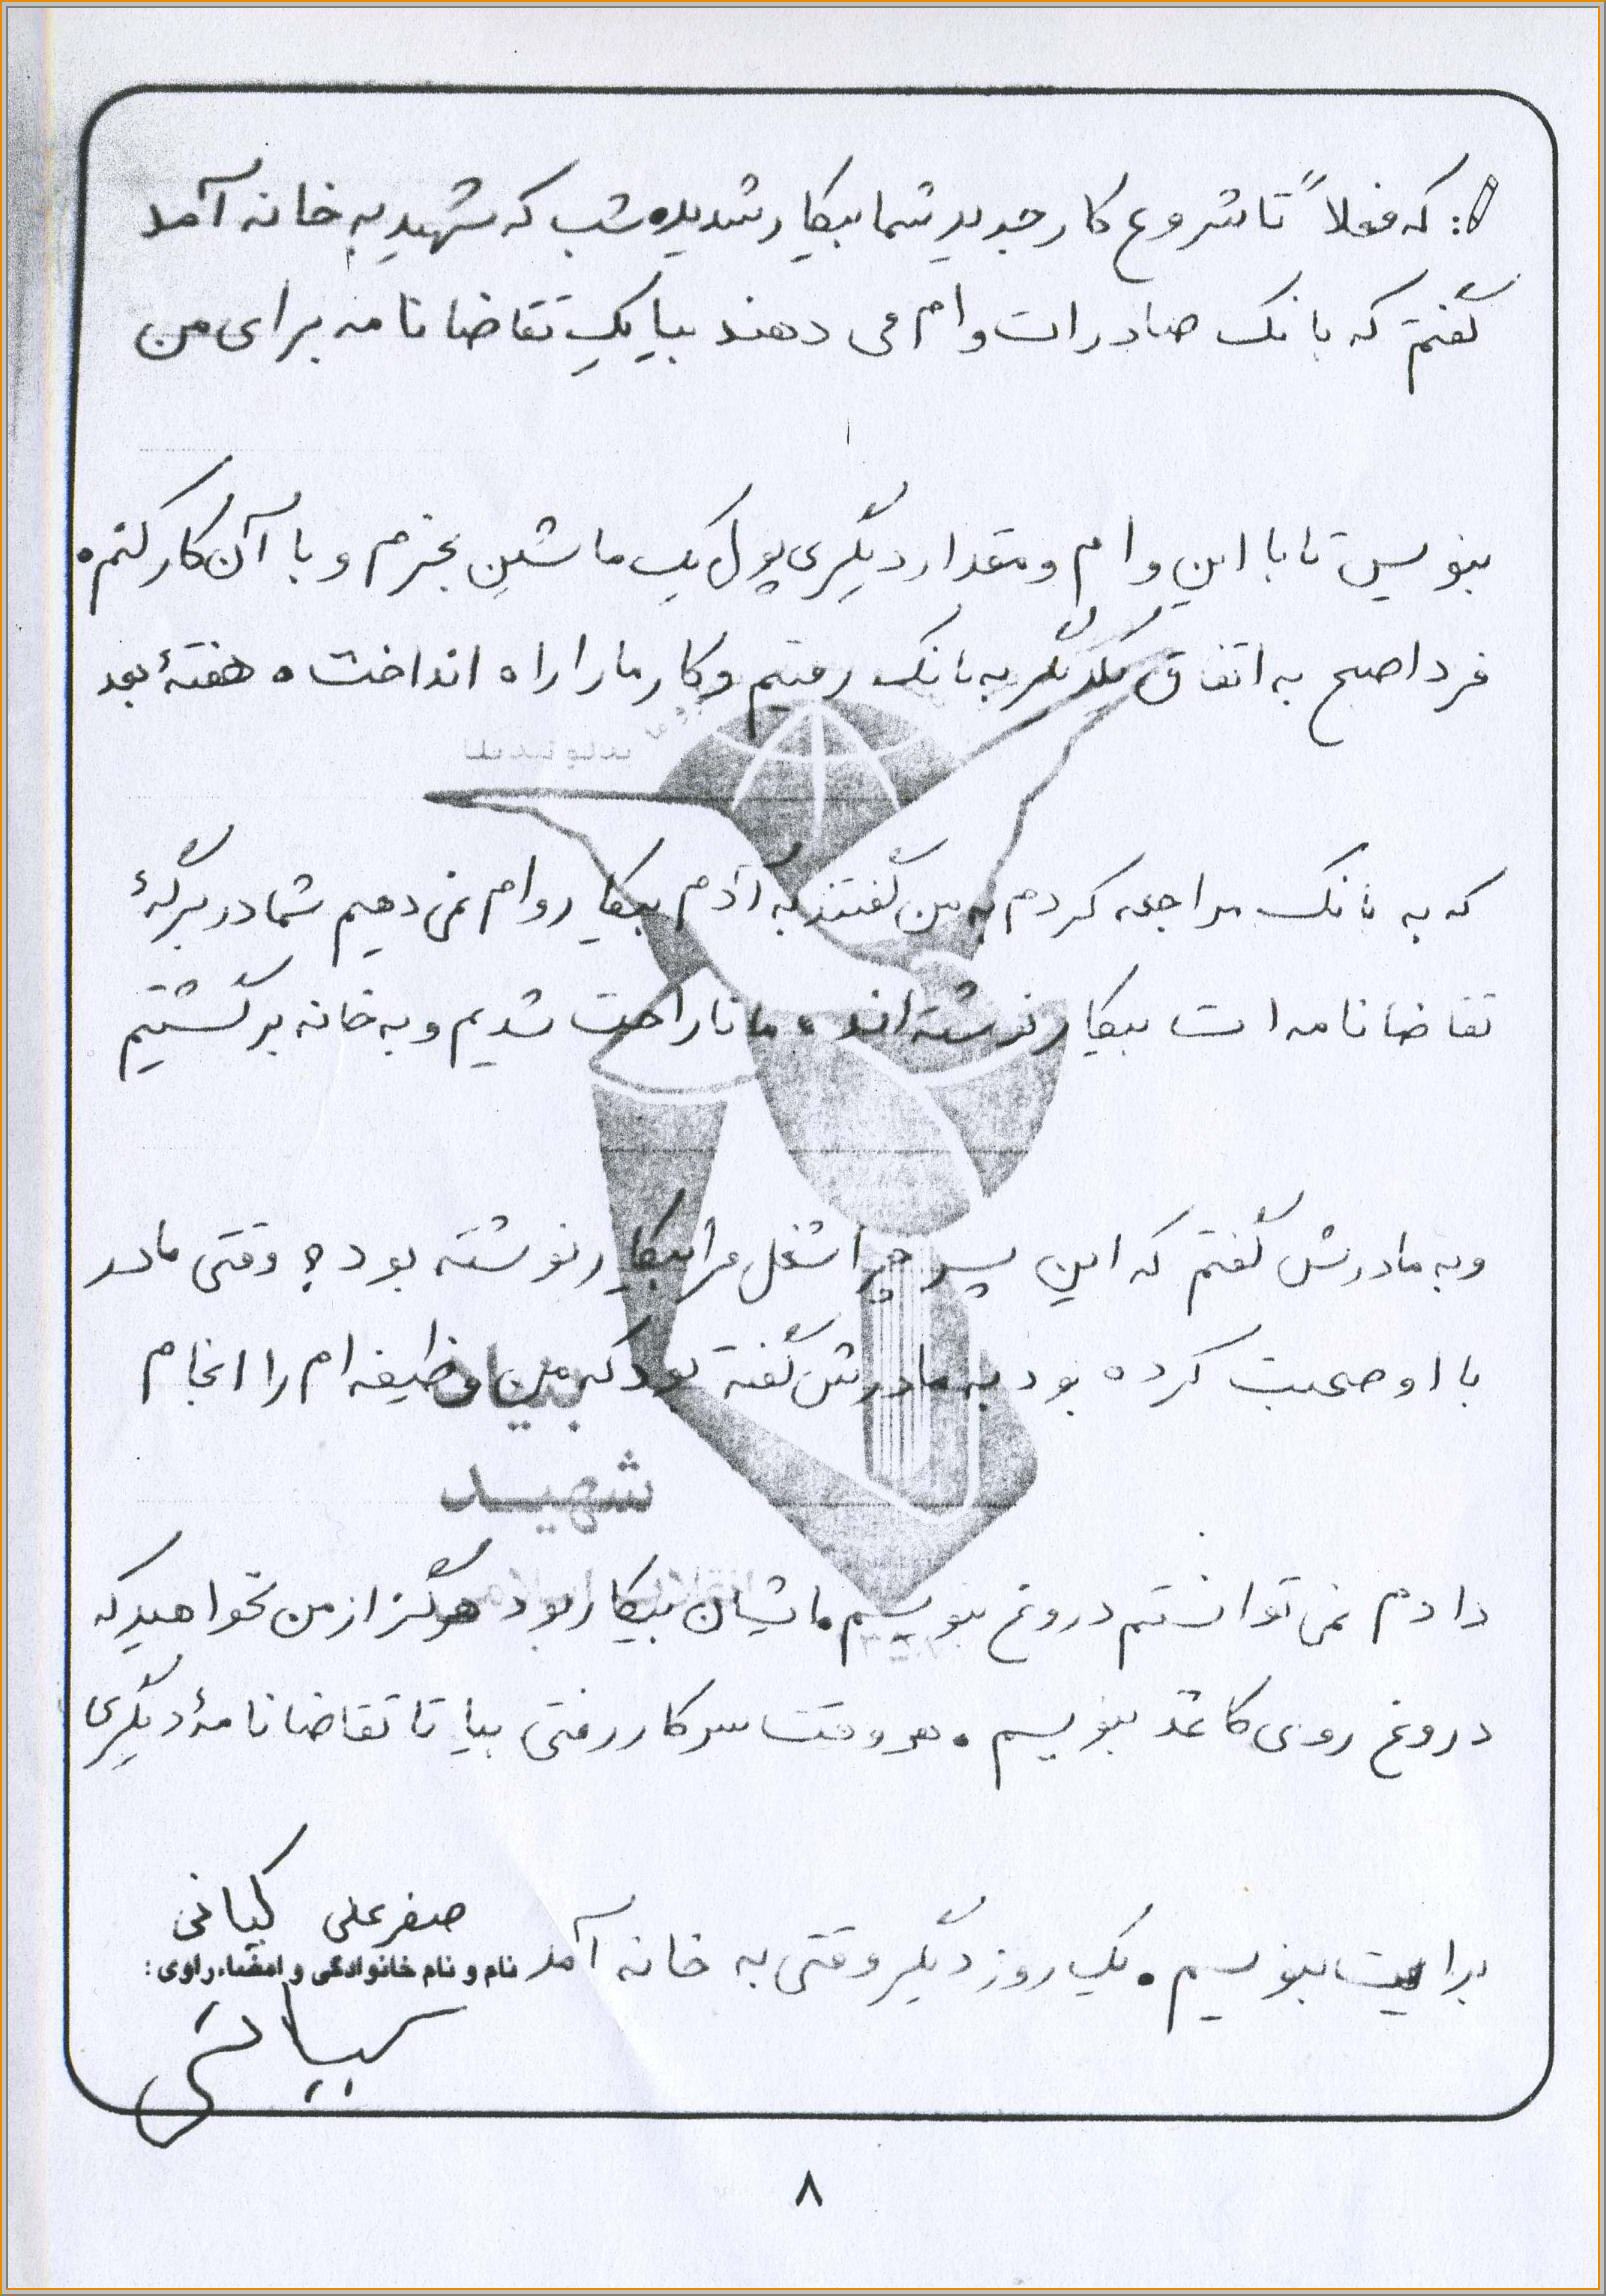 که فعلاً تا شروع کار جدید شما بیکار شدید. شب که شهید به خانه آمد
گفتم که بانک صادرات وام می دهند بیا یک تقاضا نامه برای من
بنویس تا با این وام و مقدار دیگری پول یک ماشین بخرم و با آن کار کنم.
فردا صبح به اتفاق یکدیگر به بانک رفتیم و کار ما را راه انداخت. هفتهٔ بعد
که به بانک مراجعه کردم به من گفتند به آدم بیکار وام نمی دهیم شما در برگهٔ
تقاضا نامه ات بیکار نوشته اند. ما ناراحت شدیم و به خانه برگشتیم
و به مادرش گفتم که این پسر چرا شغل مرا بیکار نوشته بود؟ وقتی مادر
با او صحبت کرده بود به مادرش گفته بود که من وظیفه ام را انجام
شهید
دادم نمی توانستم دروغ بنویسم. ایشان بیکار بود هرگز از من نخواهید که
دروغ روی کاغذ بنویسم. هر وقت سر کار رفتی بیا تا تقاضا نامهٔ دیگری
برایت بنویسم. یک روز دیگر وقتی به خانه آمد
صفرعلی کیانی
نام و نام خانوادگی و امضاء راوی:
کیانی
۸